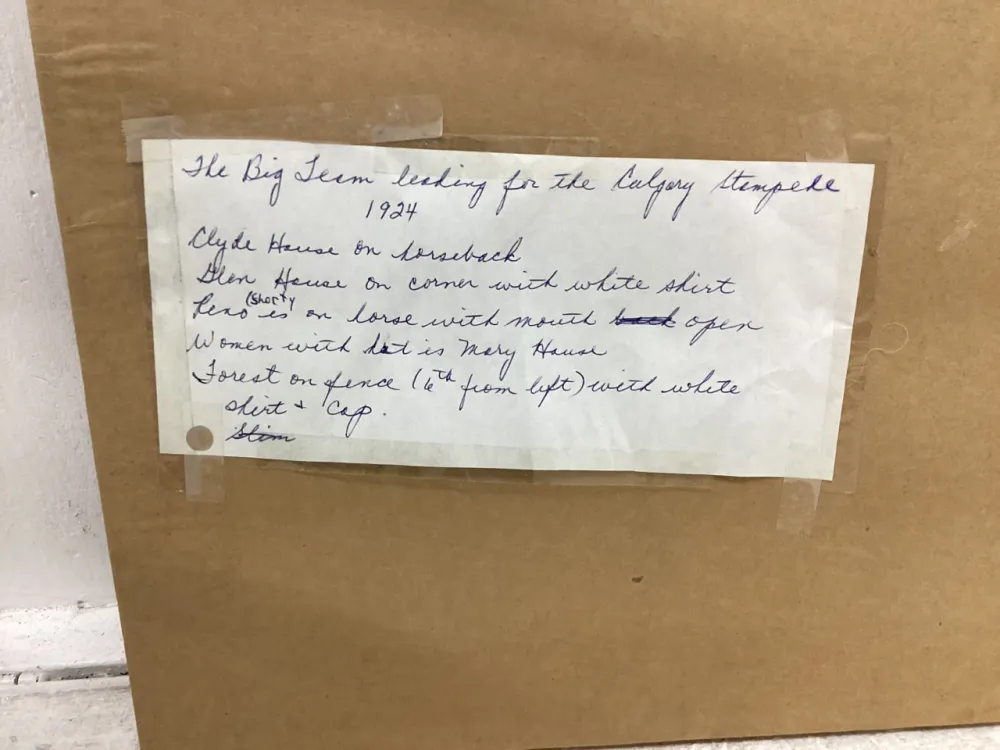 The Big Team leading for the Calgary Stampede
1924
Clyde House on horseback
Glen House on corner with white shirt
Reno (Shorty is on horse with mouth open
Women with hat is Mary House
Forest on fence (6th from left) with white
shirt + cap.
Slim